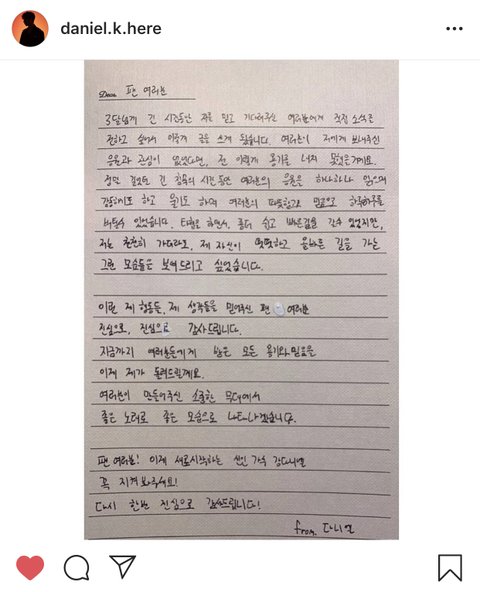 daniel.k.here
Dear. 팬 여러분
3달넘게 긴 시간동안 저를 믿고 기다려주신 여러분에게 직접 소식을
전하고 싶어서 이렇게 글을 쓰게 됐습니다. 여러분이 저에게 보내주신
응원과 관심이 없었다면, 전 이렇게 용기를 내지 못했을거에요.
정말 길었던 긴 침묵의 시간동안 여러분의 응원을 하나하나 읽으며
감동하기도 하고 울기도 하며 여러분의 믿음으로 하루하루를
버틸수 있었습니다. 타협을 하면서, 좀더 쉽고 빠른길을 갈수 있었지만,
저는 천천히 가더라도, 제 자신이 떳떳하고 올바른 길을 가는
그런 모습들을 보여드리고 싶었습니다.
이런 제 행동들, 제 생각들을 믿어주신 팬 여러분
진심으로, 진심으로 감사드립니다.
지금까지 여러분들에게 받은 모든 용기와 믿음을
이제 제가 돌려드릴게요.
여러분이 만들어주신 소중한 무대에서
좋은 노래로 좋은 모습으로 나타나겠습니다.
팬 여러분! 이제 새로시작하는 신인 가수 강다니엘
꼭 지켜봐주세요!
다시 한번 진심으로 감사드립니다!
from. 다니엘